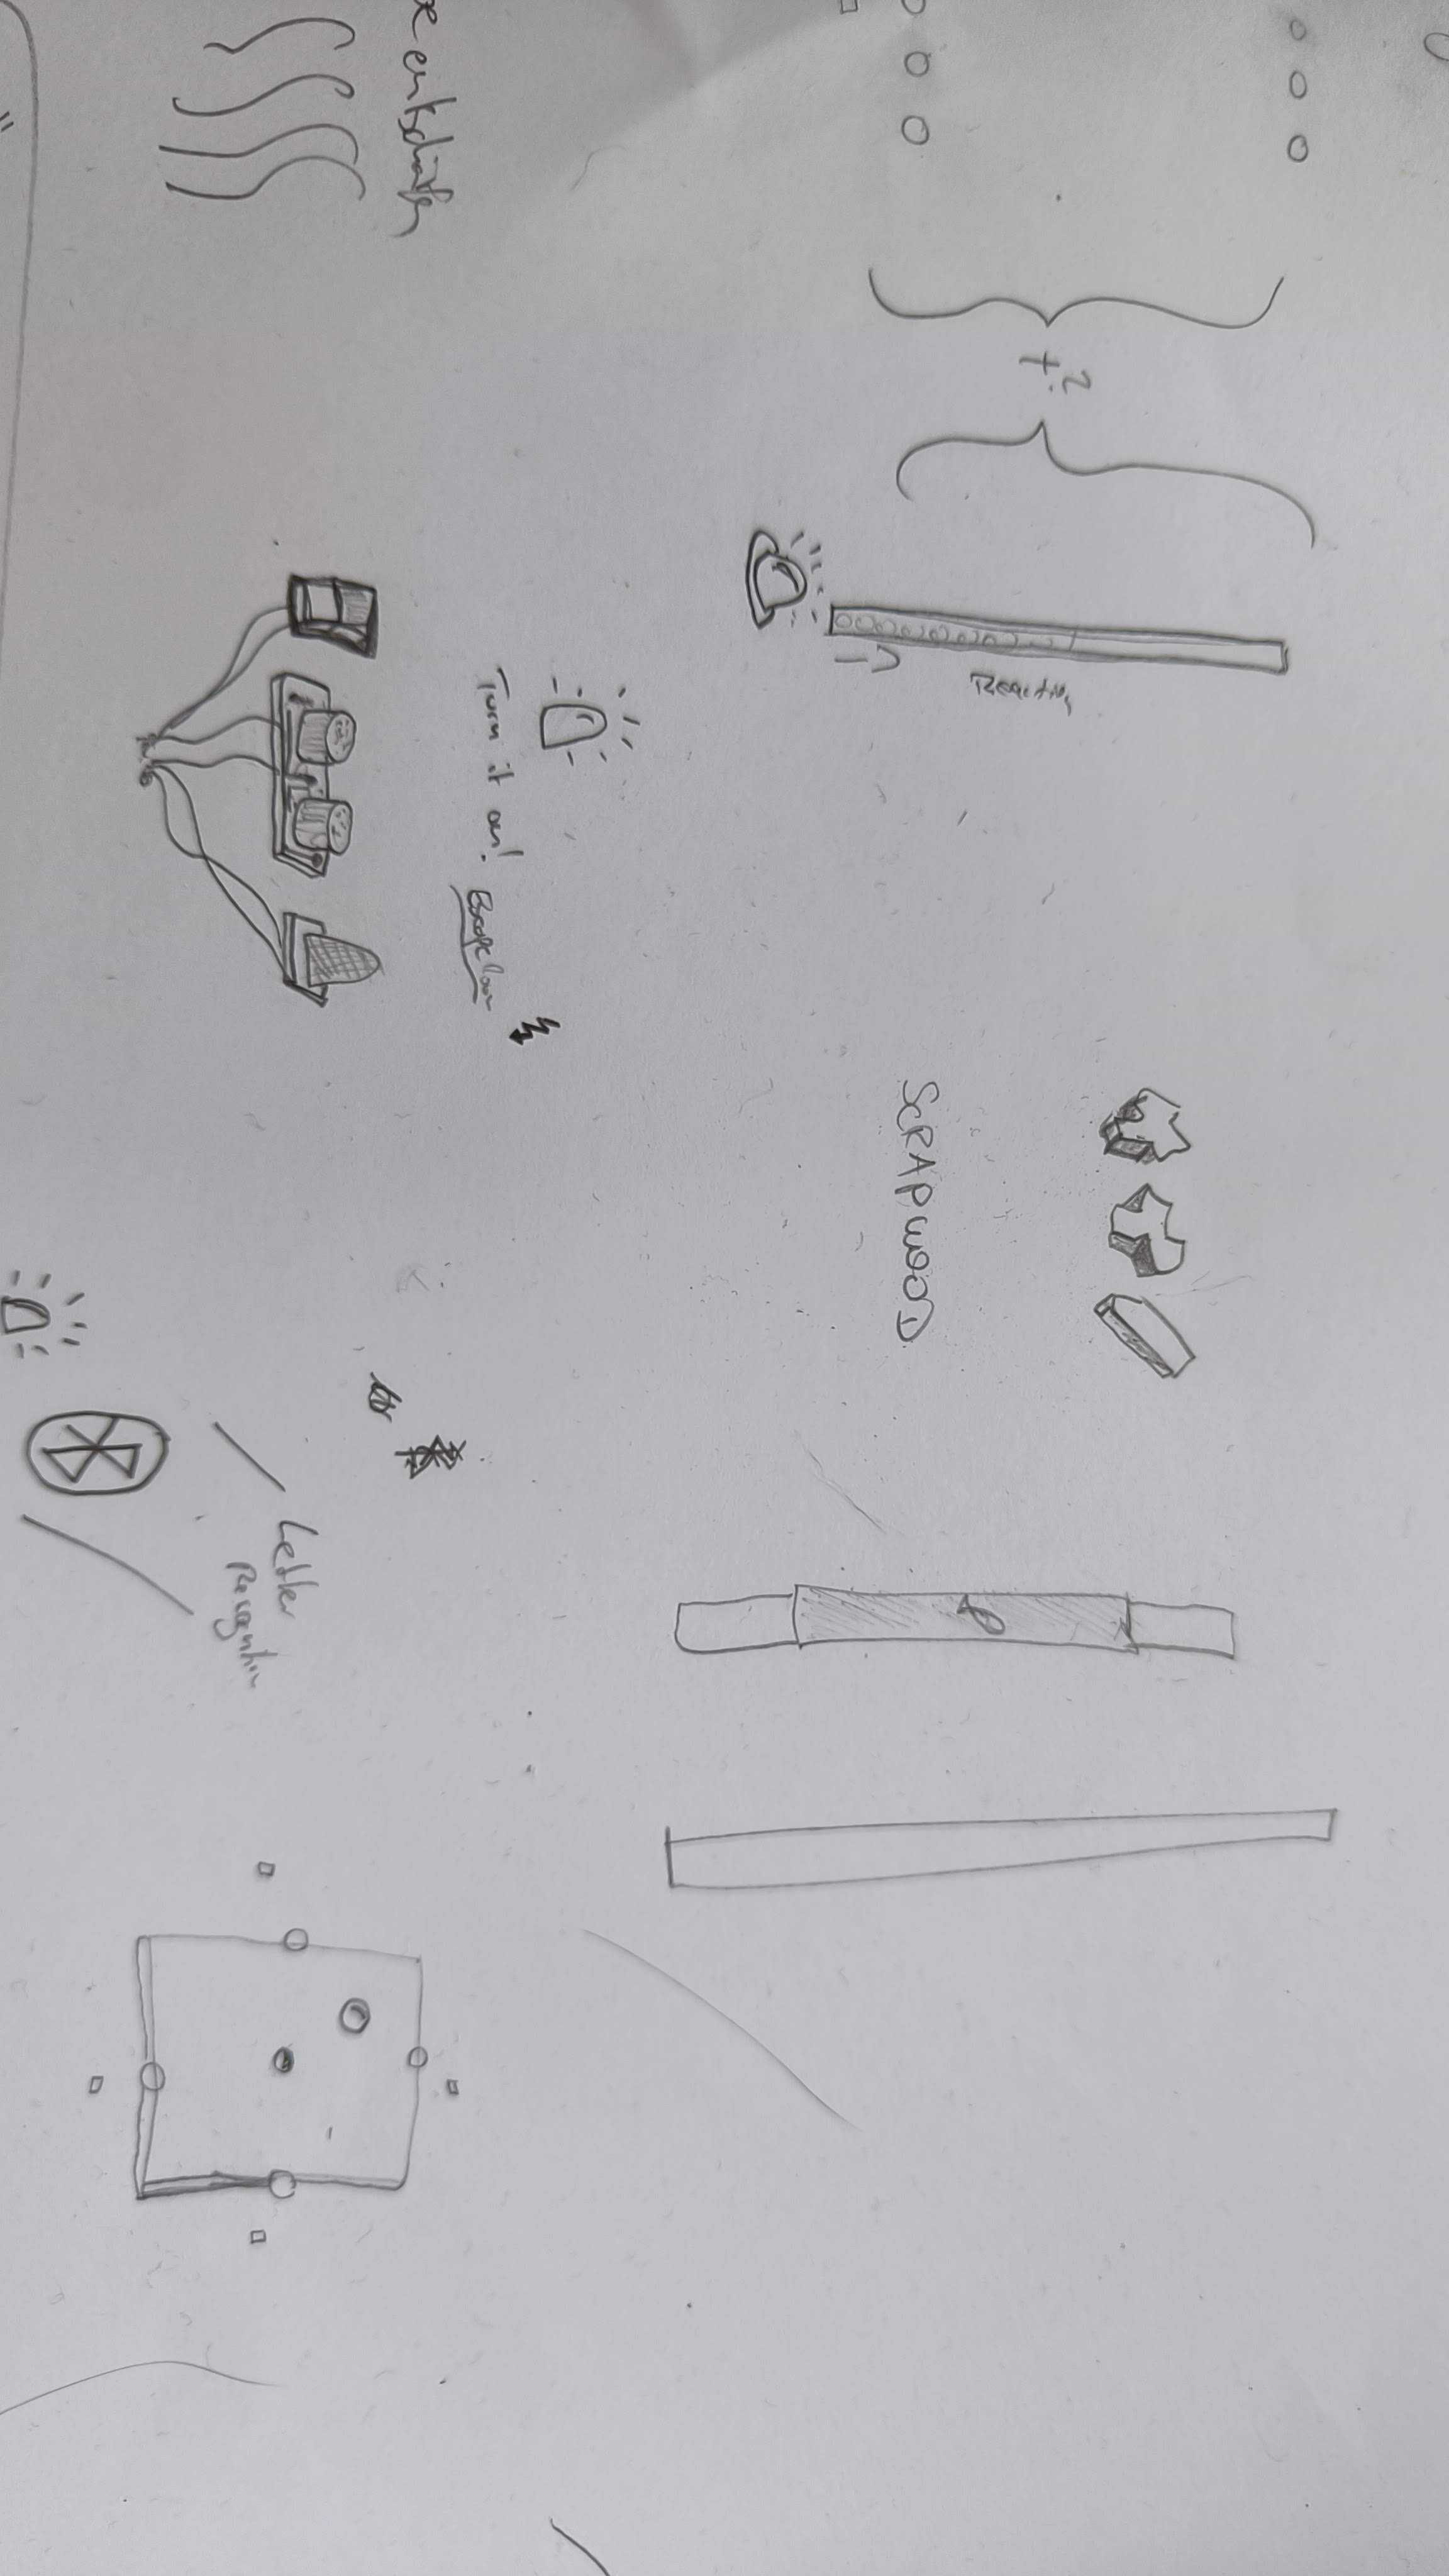 +?
SCRAPWOOD
Turn it on!
Escape Room
entschärfen
Letter
Recognition